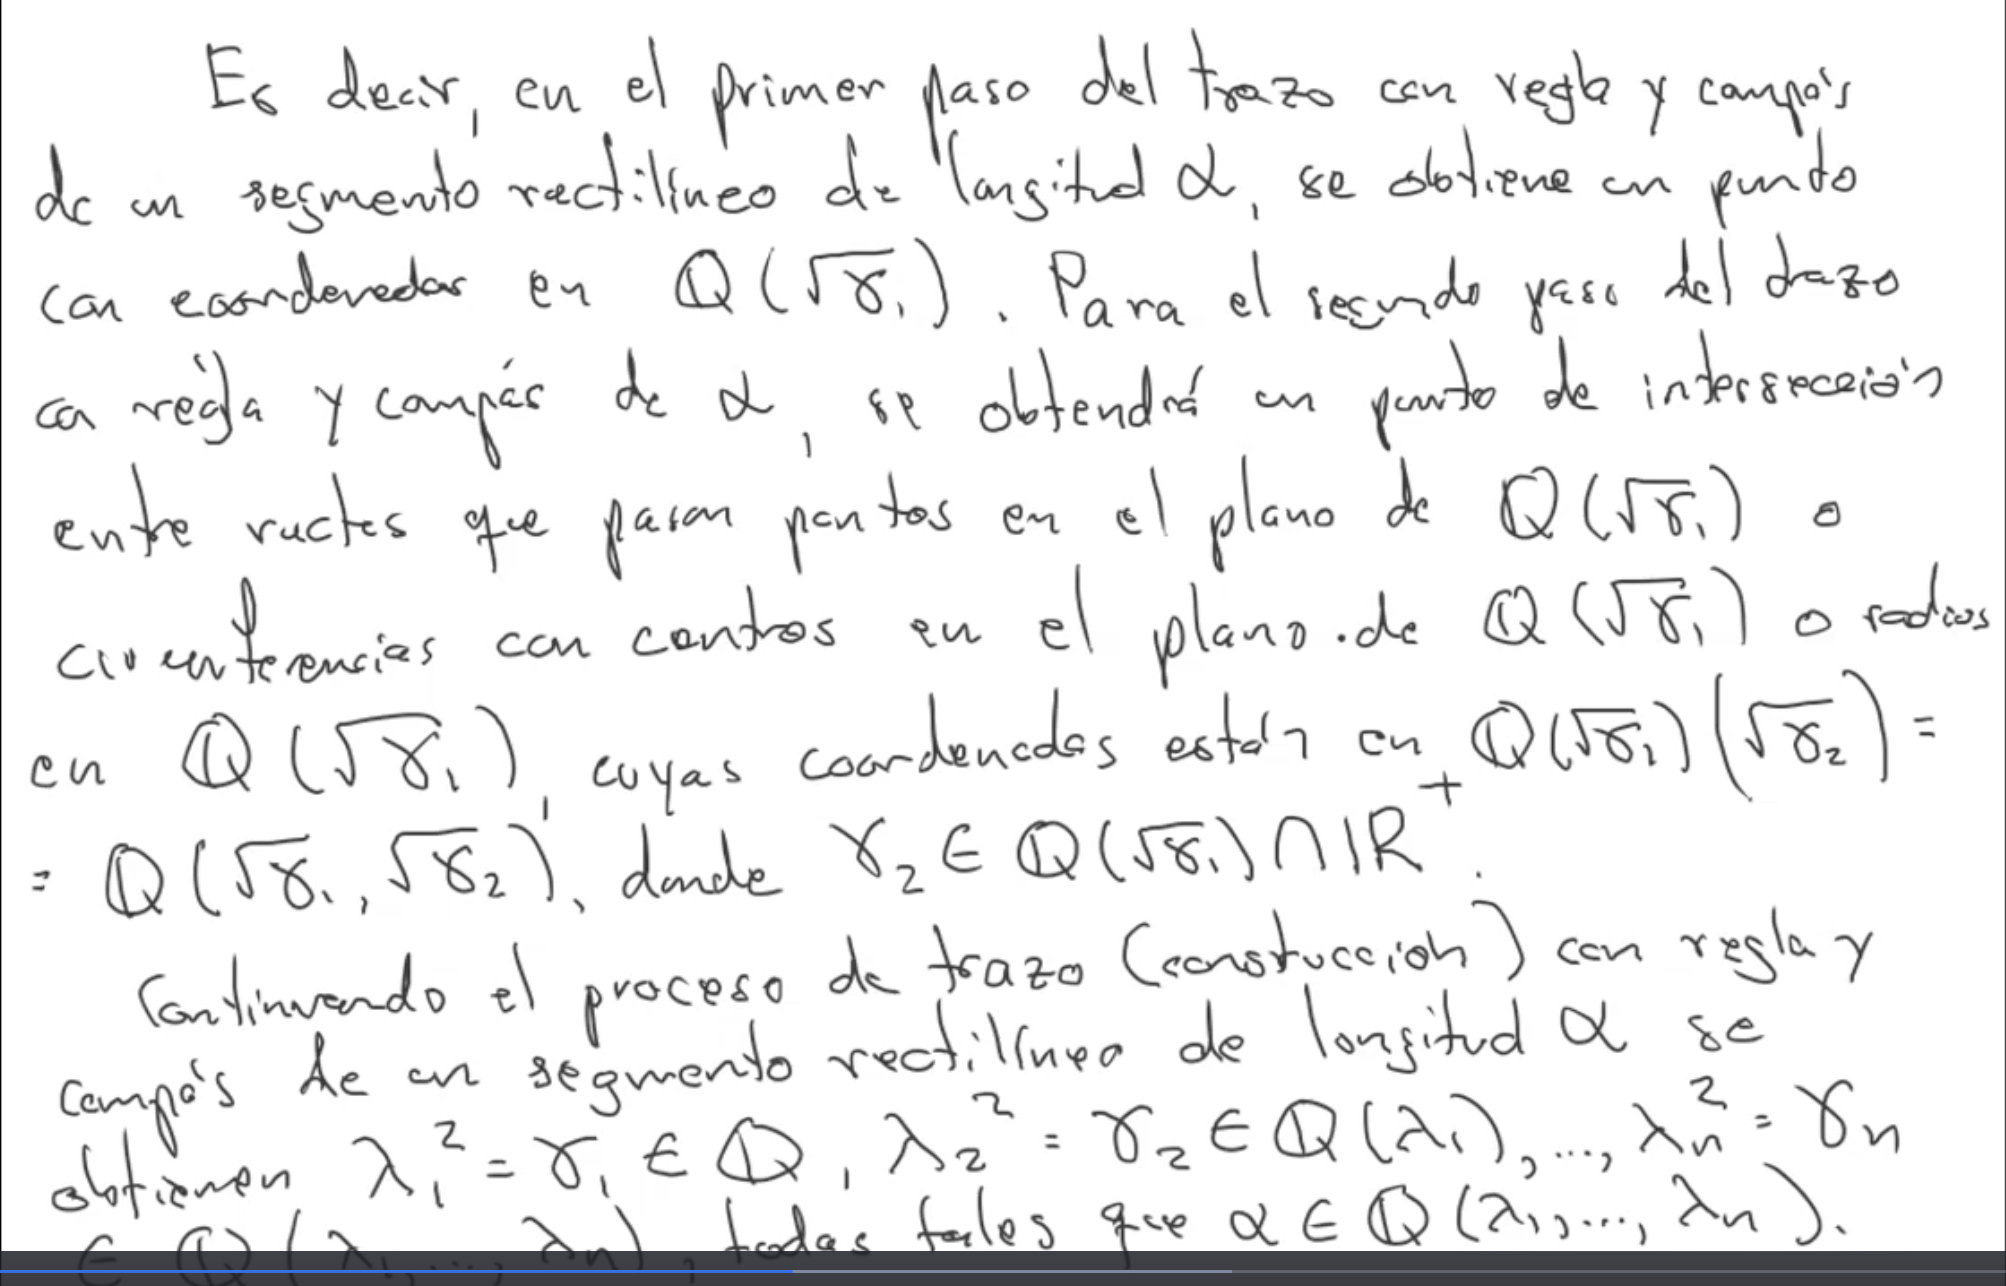 Es decir, en el primer paso del trazo con regla y compás
de un segmento rectilíneo de longitud α, se obtiene un punto
con coordenadas en ℚ(√γ₁). Para el segundo paso del trazo
con regla y compás de α, se obtendrá un punto de intersección
entre rectas que pasan puntos en el plano de ℚ(√γ₁) o
circunferencias con centros en el plano de ℚ(√γ₁) o radios
en ℚ(√γ₁), cuyas coordenadas están en ℚ(√γ₁)(√γ₂) =
= ℚ(√γ₁, √γ₂), donde γ₂ ∈ ℚ(√γ₁) ∩ ℝ⁺.
Continuando el proceso de trazo (constucción) con regla y
compás de un segmento rectilíneo de longitud α se
obtienen λ₁² = γ₁ ∈ ℚ, λ₂² = γ₂ ∈ ℚ(λ₁), ..., λₙ² = γₙ
∈ ℚ(λ₁, ..., λₙ), todas tales que α ∈ ℚ(λ₁, ..., λₙ).